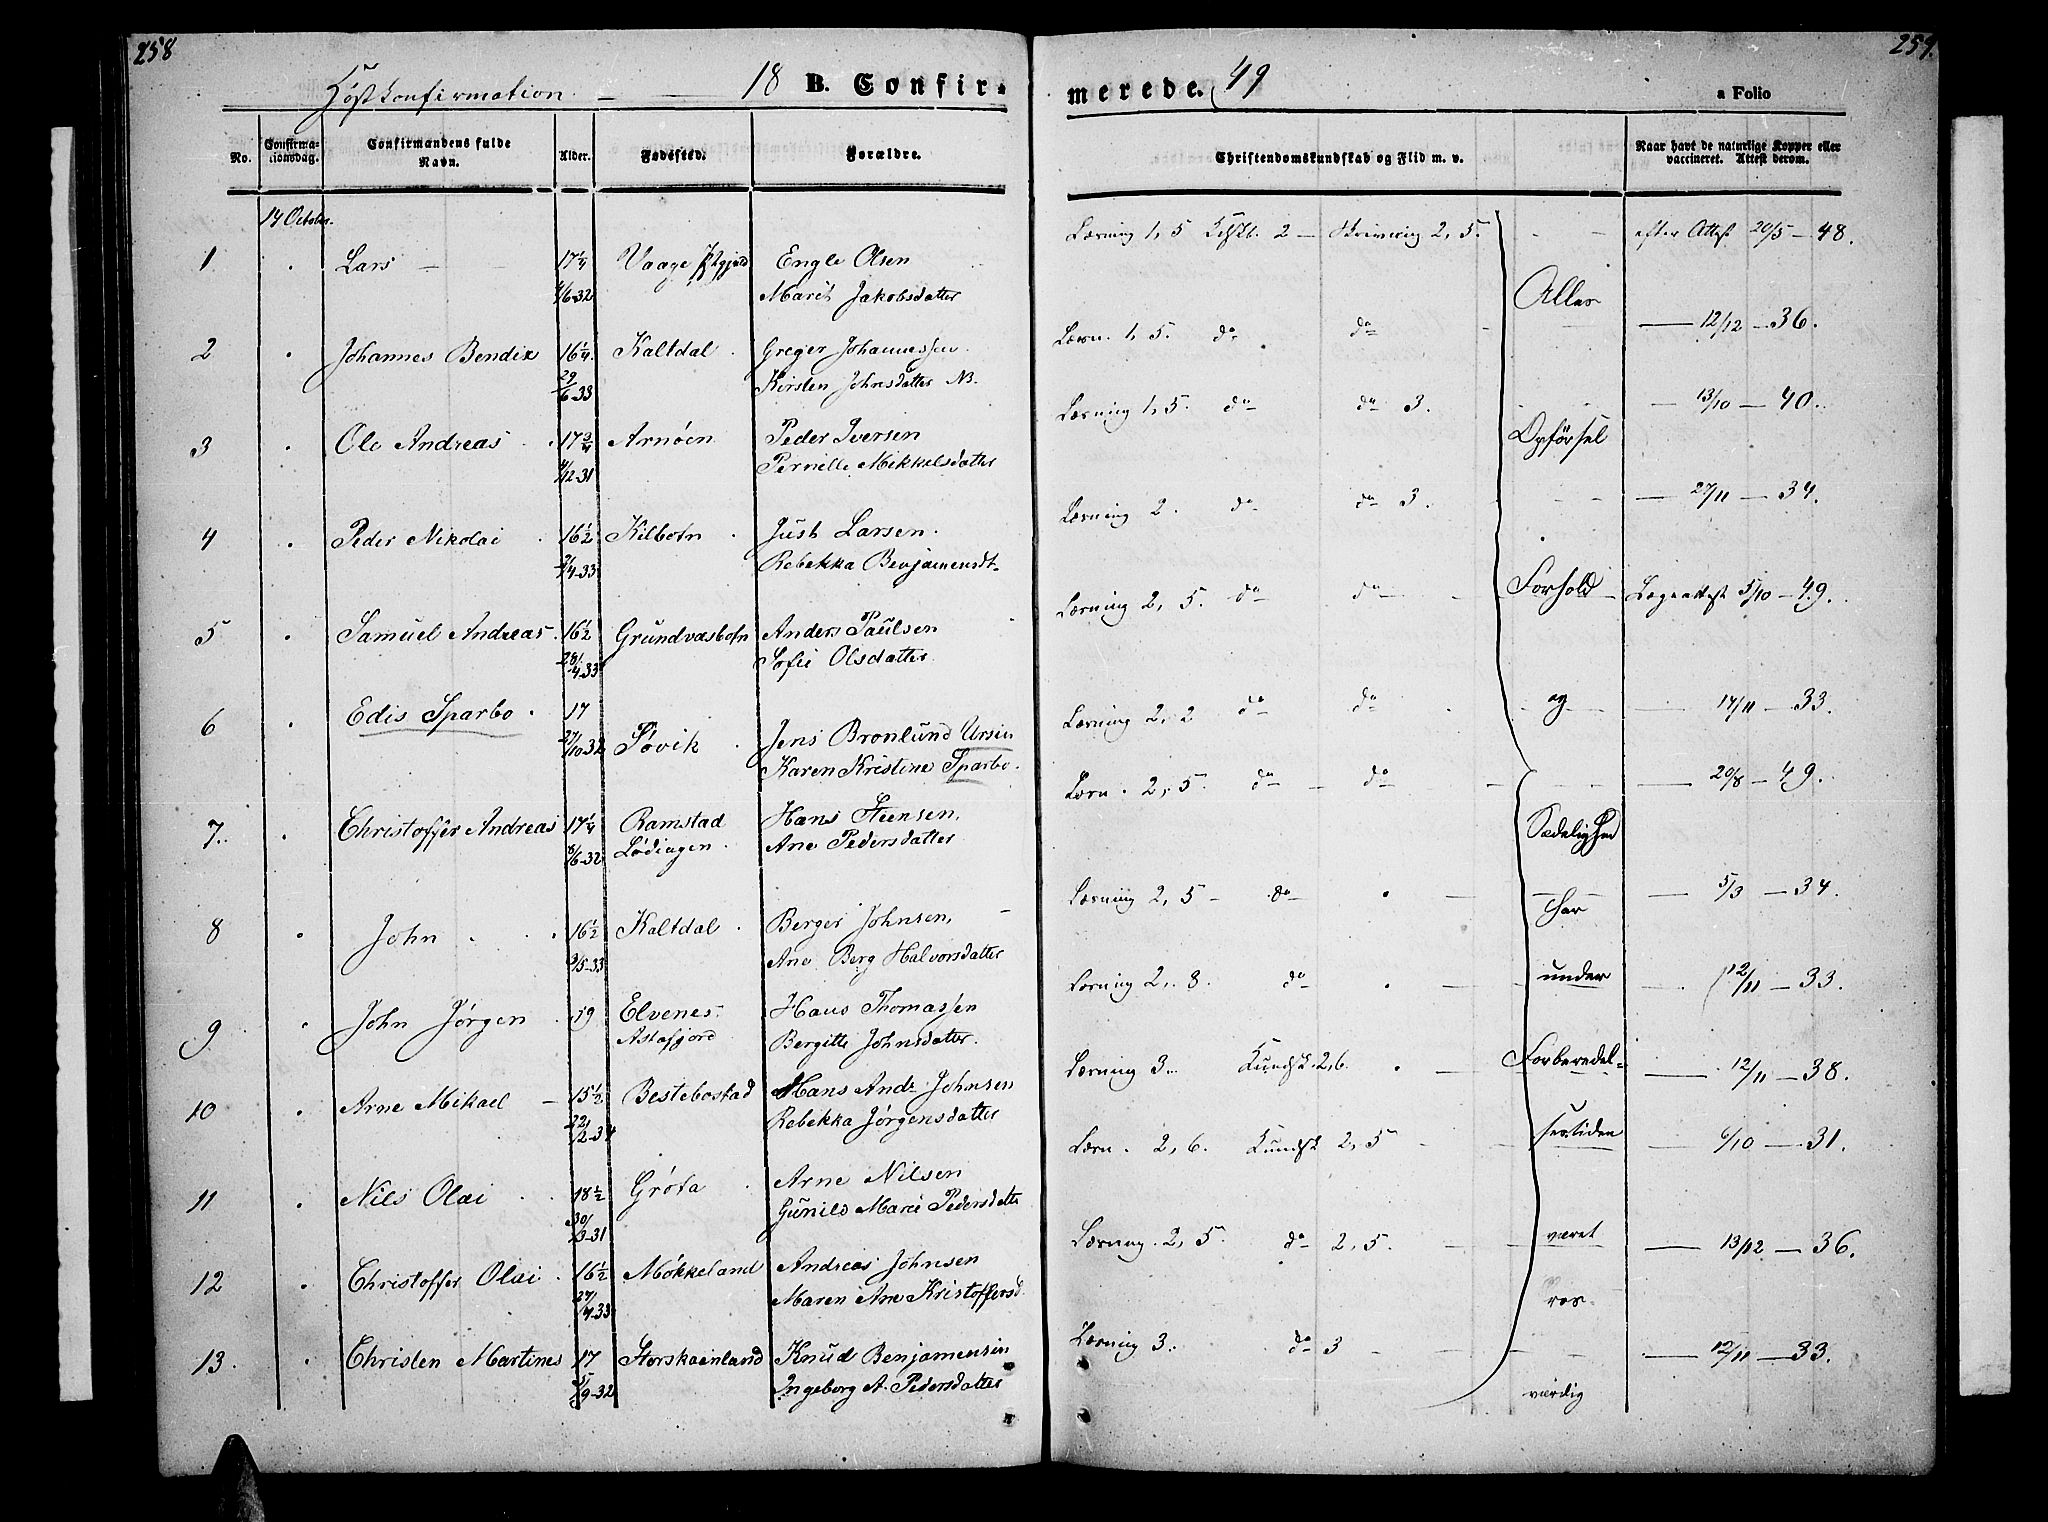 258
259.
Høstkonfirmation. 18 B. Confirmerede. 49 a Folio
No. Confirmationsdag. Confirmandens fulde Navn. Alder. Fødested. Forældre. Christendomskundskab og Flid m. v. Naar havt de naturlige Kopper eller vaccineret. Attest derom.
14 October.
1 Lars 17 1/4 Vaage Engle Olsen Læsning 1,5 2 Skrivning 2,5. efter Attest 20/5 - 48.
4/6-32 Marit Jakobsdatter Alles
2 Johannes Bendix 16 1/4. Kaltdal Greger Johannessen Læsn. 1,5. do do 12/12 - 36.
29/6-33 Kirsten Johnsdatter NB.
3 Ole Andreas 17 3/4 Arnøen Peder Iversen Læsning 1,5. do do 3. Opførsel 13/10 - 40.
4/12-31 Pernille Mikkelsdatter
4 Peder Nikolai 16 1/2 Kilbotn Just Larsen. Læsning 2. do do 3. 27/11 - 34.
2/4-33 Rebekka Benjamensdt-
5 Samuel Andreas 16 1/2 Grundvasbotn Anders Paulsen Læsning 2,5. do do Forhold Lægeattest 5/10 - 49.
28/4-33 Sofie Olsdatter
6 Edis Sparbo 17 Søvik Jens Bronlund Ursin Læsning 2,2 do do og 17/11 - 33.
27/10-32 Karen Kristine Sparbo.
7. Christoffer Andreas 17 1/4 Ramstad Hans Steensen, Læsn. 2,5. do do Sædelighed 20/8 - 49.
8/6-32 Lødingen Ane Pedersdatter
8 John 16 1/2 Kaltdal Berger Johnsen, Læsning 2,5 do har 5/3 - 34.
3/5-33 Ane Berg Halvorsdatter
9 John Jørgen 19 Elvenes Hans Thomassen Læsning 2,8. do under 12/11 - 33.
Astafjord Bergitte Johnsdatter.
10 Arne Mikael 15 1/2 Bestebostad Hans Andr. Johnsen Læsning 3. Kundsk. 2,6. Forberedel- 12/11 - 38.
22/2-34 Rebekka Jørgensdatter
11 Nils Olai 18 1/2 Grøta Arne Nilsen Læsn. 2,6. Kundsk 2,5 sestiden 6/10 - 31.
30/3-31 Gunild Marie Pedersdatte
12 Christoffer Olai 16 1/2 Møkkeland Andreas Johnsen Læsning. 2,5. do 2,5. været 13/12 - 36.
27/4-33 Maren Ane Kristoffersd. ros-
13. Christen Martines 17 Storskoenland Knud Benjamensen Læsning 3. do 3 værdig 12/11 - 33.
5/9-32 Ingeborg A. Pedersdatter